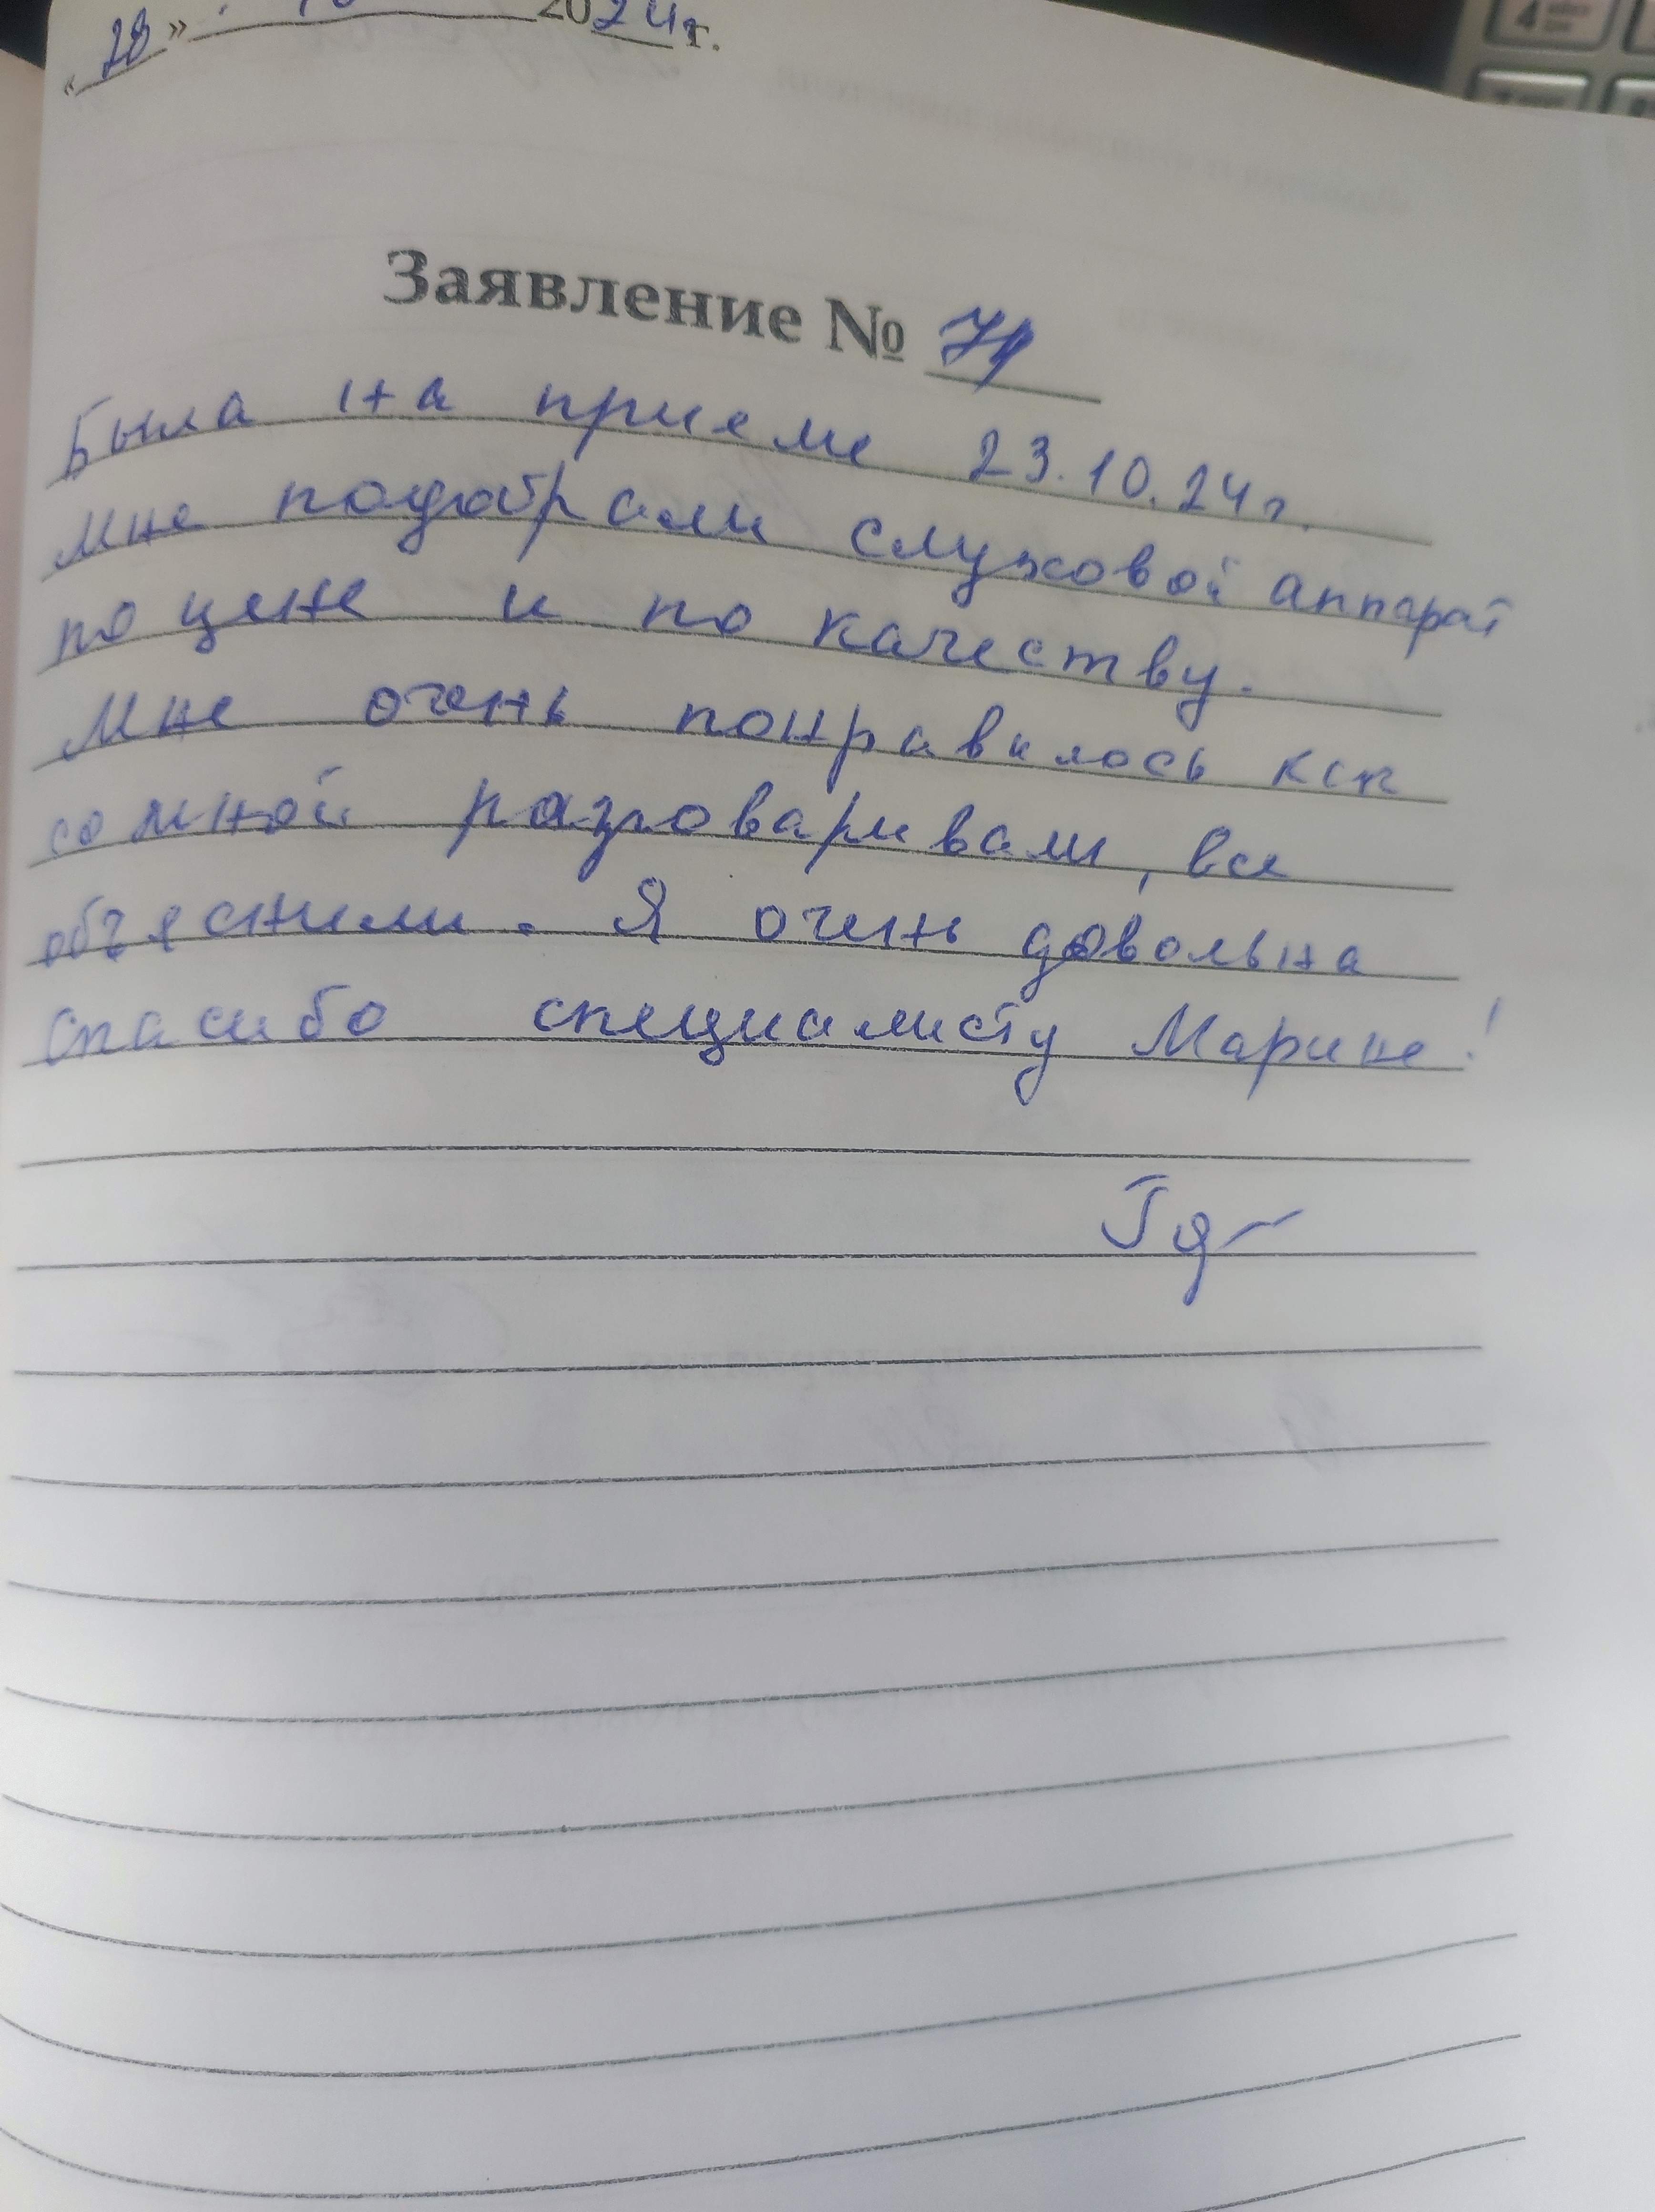 «28» 10 2024 г.
Заявление №
Была на приеме 23.10.24 г.
Мне подобрали слуховой аппарат
по цене и по качеству.
Мне очень понравилось как
со мной разговаривали, все
объяснили. Я очень довольна
спасибо специалисту Марине!